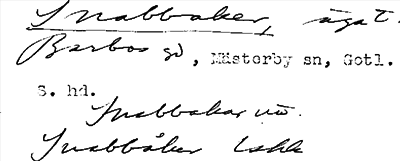 Snabbåker, ägat.
Barbos gd, Mästerby sn, Gotl.
S. hd.
Snabbakar
Snabbåker